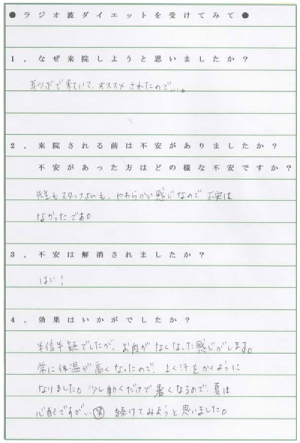 ●ラジオ波ダイエットを受けてみて●
1．なぜ来院しようと思いましたか？
耳つぼで来ていて、オススメされたので…。
2．来院される前は不安がありましたか？
不安があった方はどの様な不安ですか？
先生もスタッフさんも、やわらかい感じなので、不安は
なかったであ。
3．不安は解消されましたか？
はい！
4．効果はいかがでしたか？
半信半疑でしたが、お肉がなくなった感じがします。
常に体温が高くなったので、よく汗をかくように
なりました。少し動くだけで暑くなるので、夏は
心配ですが… 続けてみようと思いました。